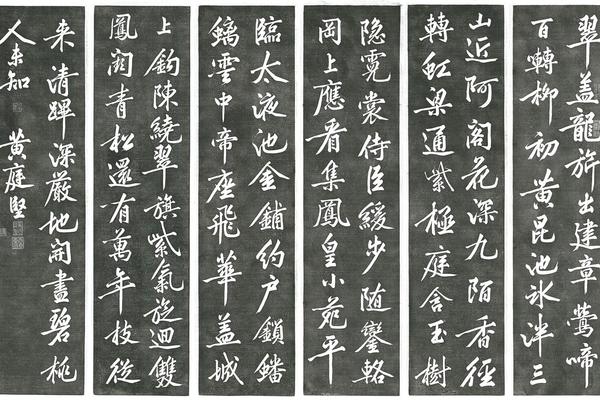 翠盖龍旂出建章鶯啼
百囀柳初黄昆池冰泮三
山近阿閣花深九陌香徑
轉虹梁通紫極庭含玉樹
隐霓裳侍臣緩步随鑾輅
岡上應看集鳳皇小苑平
臨太液池金鋪約户鎖蟠
螭雲中帝座飛華盖城
上鈎陳繞翠旗紫氣旋迴雙
鳳闕青松還有萬年枝從
来清蹕深嚴地開盡碧桃
人未知 黄庭堅